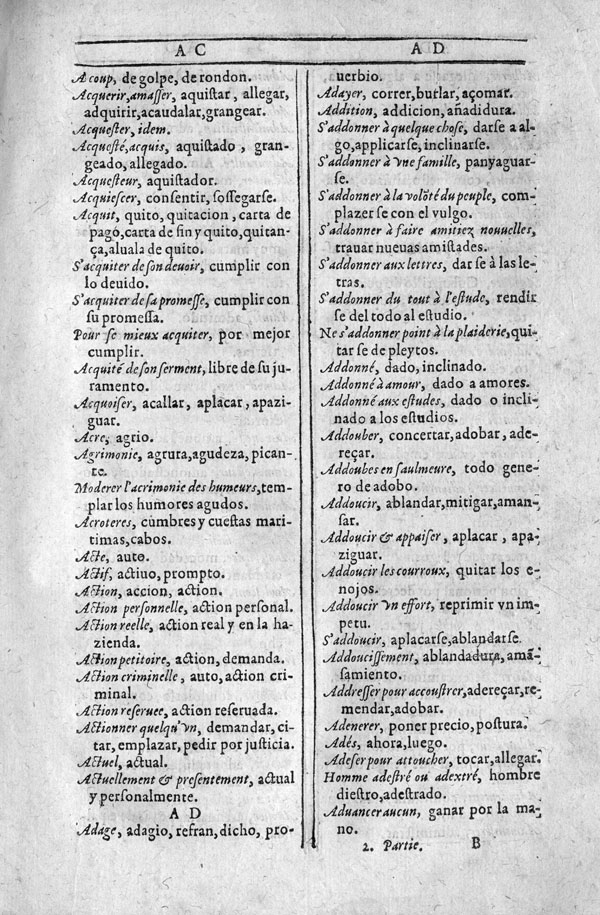 A C
A coup, de golpe, de rondon.
Acquerir, amasser, aquistar, allegar,
adquirir, acaudalar, grangear.
Acquester, idem.
Acquesté, acquis, aquistado, gran-
geado, allegado.
Acquesteur, aquistador.
Acquiescer, consentir, sossegarse.
Acquit, quito, quitacion, carta de
pago, carta de fin y quito, quitan-
ça, aluala de quito.
S'acquiter de son deuoir, cumplir con
lo deuido.
S'acquiter de sa promesse, cumplir con
su promessa.
Pour se mieux acquiter, por mejor
cumplir.
Acquité de son serment, libre de su ju-
ramento.
Acquoiser, acallar, aplacar, apazi-
guar.
Acre, agrio.
Agrimonie, agrura, agudeza, pican-
te.
Moderer l'acrimonie des humeurs, tem-
plar los humores agudos.
Acroteres, cumbres y cuestas mari-
timas, cabos.
Acte, auto.
Actif, actiuo, prompto.
Action, accion, action.
Action personnelle, action personal.
Action reelle, action real y en la ha-
zienda.
Action petitoire, action, demanda.
Action criminelle, auto, action cri-
minal.
Action reseruee, action reseruada.
Actionner quelqu'vn, demandar, ci-
tar, emplazar, pedir por justicia.
Actuel, actual.
Actuellement & presentement, actual
y personalmente.
A D
Adage, adagio, refran, dicho, pro-
A D
uerbio.
Adayer, correr, burlar, açomar.
Addition, addicion, añadidura.
S'addonner à quelque chose, darse a al-
go, applicarse, inclinarse.
S'addonner à vne famille, panyaguar-
se.
S'addonner à la volõté du peuple, com-
plazer se con el vulgo.
S'addonner à faire amitiez nouuelles,
trauar nueuas amistades.
S'addonner aux lettres, dar se à las le-
tras.
S'addonner du tout à l'estude, rendir
se del todo al estudio.
Ne s'addonner point à la plaiderie, qui-
tar se de pleytos.
Addonné, dado, inclinado.
Addonné à amour, dado a amores.
Addonné aux estudes, dado o incli-
nado a los estudios.
Addouber, concertar, adobar, ade-
reçar.
Addoubes en saulmeure, todo gene-
ro de adobo.
Addoucir, ablandar, mitigar, aman-
sar.
Addoucir & appaiser, aplacar, apa-
ziguar.
Addoucir les courroux, quitar los e-
nojos.
Addoucir vn effort, reprimir vn im-
petu.
S'addoucir, aplacarse, ablandarse.
Addoucissement, ablandadura, amã-
samiento.
Addresser pour accoustrer, adereçar, re-
mendar, adobar.
Adenerer, poner precio, postura.
Adés, ahora, luego.
Adeser pour attoucher, tocar, allegar.
Homme adestré ou adextré, hombre
diestro, adestrado.
Aduancer aucun, ganar por la ma-
no.
2. Partie. B